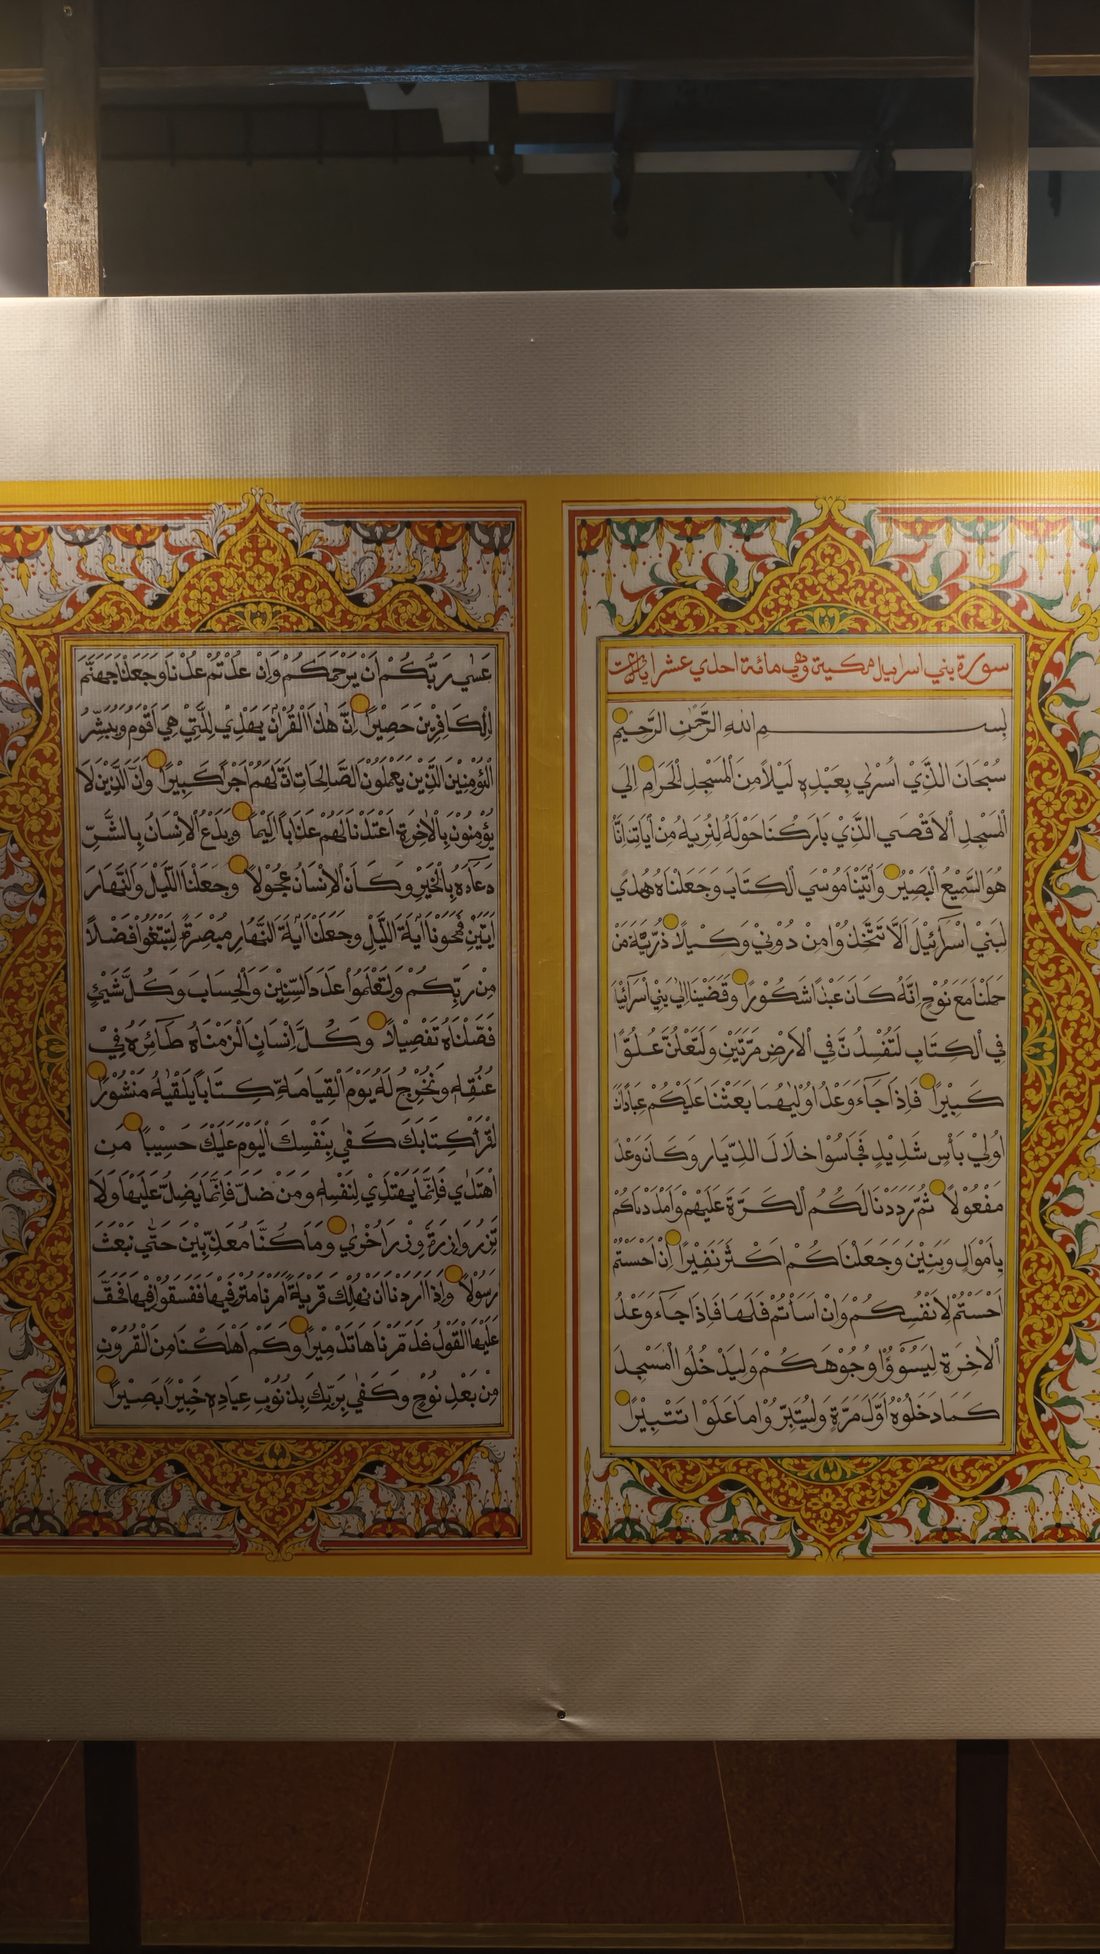 سورة بني اسراييل مكية وهي مائة احدي عشر ايات
بسم الله الرَّحْمٰنِ الرَّحِيْمِ
سُبْحَانَ الَّذِيْ اَسْرٰي بِعَبْدِهٖ لَيْلًا مِنَ الْمَسْجِدِ الْحَرَامِ اِلَي
الْمَسْجِدِ الْاَقْصَي الَّذِيْ بَارَكْنَا حَوْلَهُ لِنُرِيَهُ مِنْ اٰيَاتِنَا اِنَّهُ
هُوَ السَّمِيْعُ الْبَصِيْرُ وَاٰتَيْنَا مُوْسَي الْكِتَابَ وَجَعَلْنَاهُ هُدًي
لِبَنِي اِسْرَآئِيْلَ اَلَّا تَتَّخِذُوْا مِنْ دُوْنِيْ وَكِيْلًا ذُرِّيَّةَ مَنْ
حَمَلْنَا مَعَ نُوْحٍ اِنَّهُ كَانَ عَبْدًا شَكُوْرًا وَقَضَيْنَا اِلٰي بَنِيْ اِسْرَآئِيْلَ
فِي الْكِتَابِ لَتُفْسِدُنَّ فِي الْاَرْضِ مَرَّتَيْنِ وَلَتَعْلُنَّ عُلُوًّا
كَبِيْرًا فَاِذَا جَآءَ وَعْدُ اُوْلٰيهُمَا بَعَثْنَا عَلَيْكُمْ عِبَادًا لَنَا
اُولِيْ بَاْسٍ شَدِيْدٍ فَجَاسُوْا خِلَالَ الدِّيَارِ وَكَانَ وَعْدًا
مَفْعُوْلًا ثُمَّ رَدَدْنَا لَكُمُ الْكَرَّةَ عَلَيْهِمْ وَاَمْدَدْنَاكُمْ
بِاَمْوَالٍ وَبَنِيْنَ وَجَعَلْنَاكُمْ اَكْثَرَ نَفِيْرًا اِنْ اَحْسَنْتُمْ
اَحْسَنْتُمْ لِاَنْفُسِكُمْ وَاِنْ اَسَاْتُمْ فَلَهَا فَاِذَا جَآءَ وَعْدُ
الْاٰخِرَةِ لِيَسُوْٓؤُا وُجُوْهَكُمْ وَلِيَدْخُلُوا الْمَسْجِدَ
كَمَا دَخَلُوْهُ اَوَّلَ مَرَّةٍ وَلِيُتَبِّرُوْا مَا عَلَوْا تَتْبِيْرًا
عَسٰي رَبُّكُمْ اَنْ يَرْحَمَكُمْ وَاِنْ عُدْتُمْ عُدْنَا وَجَعَلْنَا جَهَنَّمَ
لِلْكَافِرِيْنَ حَصِيْرًا اِنَّ هٰذَا الْقُرْاٰنَ يَهْدِيْ لِلَّتِيْ هِيَ اَقْوَمُ وَيُبَشِّرُ
الْمُؤْمِنِيْنَ الَّذِيْنَ يَعْمَلُوْنَ الصَّالِحَاتِ اَنَّ لَهُمْ اَجْرًا كَبِيْرًا وَاَنَّ الَّذِيْنَ لَا
يُؤْمِنُوْنَ بِالْاٰخِرَةِ اَعْتَدْنَا لَهُمْ عَذَابًا اَلِيْمًا وَيَدْعُ الْاِنْسَانُ بِالشَّرِّ
دُعَآءَهُ بِالْخَيْرِ وَكَانَ الْاِنْسَانُ عَجُوْلًا وَجَعَلْنَا اللَّيْلَ وَالنَّهَارَ
اٰيَتَيْنِ فَمَحَوْنَا اٰيَةَ اللَّيْلِ وَجَعَلْنَا اٰيَةَ النَّهَارِ مُبْصِرَةً لِتَبْتَغُوْا فَضْلًا
مِنْ رَبِّكُمْ وَلِتَعْلَمُوْا عَدَدَ السِّنِيْنَ وَالْحِسَابَ وَكُلَّ شَيْئٍ
فَصَّلْنَاهُ تَفْصِيْلًا وَكُلَّ اِنْسَانٍ اَلْزَمْنَاهُ طَآئِرَهُ فِيْ
عُنُقِهٖ وَنُخْرِجُ لَهُ يَوْمَ الْقِيَامَةِ كِتَابًا يَلْقٰيهُ مَنْشُوْرًا
اِقْرَاْ كِتَابَكَ كَفٰي بِنَفْسِكَ الْيَوْمَ عَلَيْكَ حَسِيْبًا مَنِ
اهْتَدٰي فَاِنَّمَا يَهْتَدِيْ لِنَفْسِهٖ وَمَنْ ضَلَّ فَاِنَّمَا يَضِلُّ عَلَيْهَا وَلَا
تَزِرُ وَازِرَةٌ وِزْرَ اُخْرٰي وَمَا كُنَّا مُعَذِّبِيْنَ حَتّٰي نَبْعَثَ
رَسُوْلًا وَاِذَا اَرَدْنَا اَنْ نُهْلِكَ قَرْيَةً اَمَرْنَا مُتْرَفِيْهَا فَفَسَقُوْا فِيْهَا فَحَقَّ
عَلَيْهَا الْقَوْلُ فَدَمَّرْنَاهَا تَدْمِيْرًا وَكَمْ اَهْلَكْنَا مِنَ الْقُرُوْنِ
مِنْ بَعْدِ نُوْحٍ وَكَفٰي بِرَبِّكَ بِذُنُوْبِ عِبَادِهٖ خَبِيْرًا بَصِيْرًا